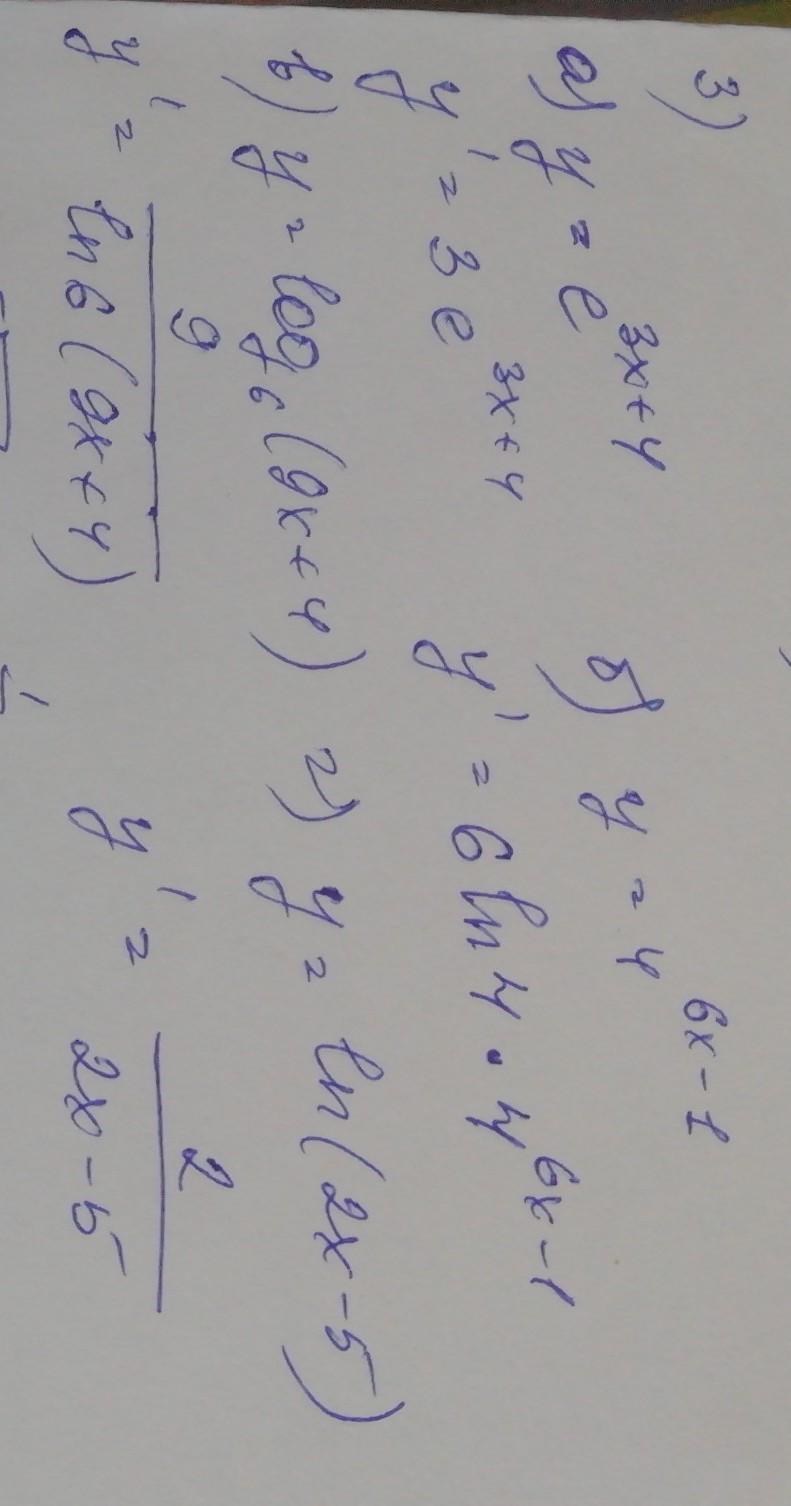 3)
а) y = e^{3x+4} б) y = 4^{6x-1}
y' = 3 e^{3x+4} y' = 6 ln 4 · 4^{6x-1}
в) y = log_6 (9x+4) г) y = ln(2x-5)
y' = 9 / ln 6 (9x+4) y' = 2 / 2x-5